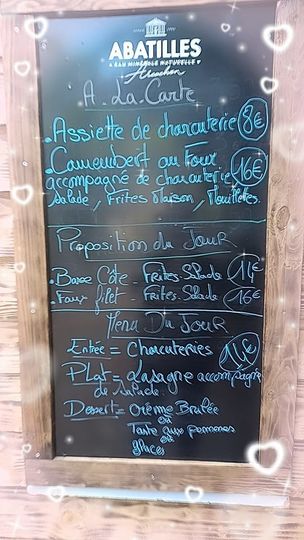 ABATILLES
EAU MINÉRALE NATURELLE
Arcachon
A La Carte
. Assiette de charcuterie 8€
. Camembert au Four 16€
accompagné de charcuterie
Salade, Frites Maison, Mouillettes
Proposition du Jour
. Basse Côte - Frites-Salade 14€
. Faux filet - Frites-Salade 16€
Menu Du Jour
Entrée = Charcuteries
Plat = Lasagne accompagnée
de salade
Dessert = Crème Brulée
ou
Tarte aux pommes
ou
glaces